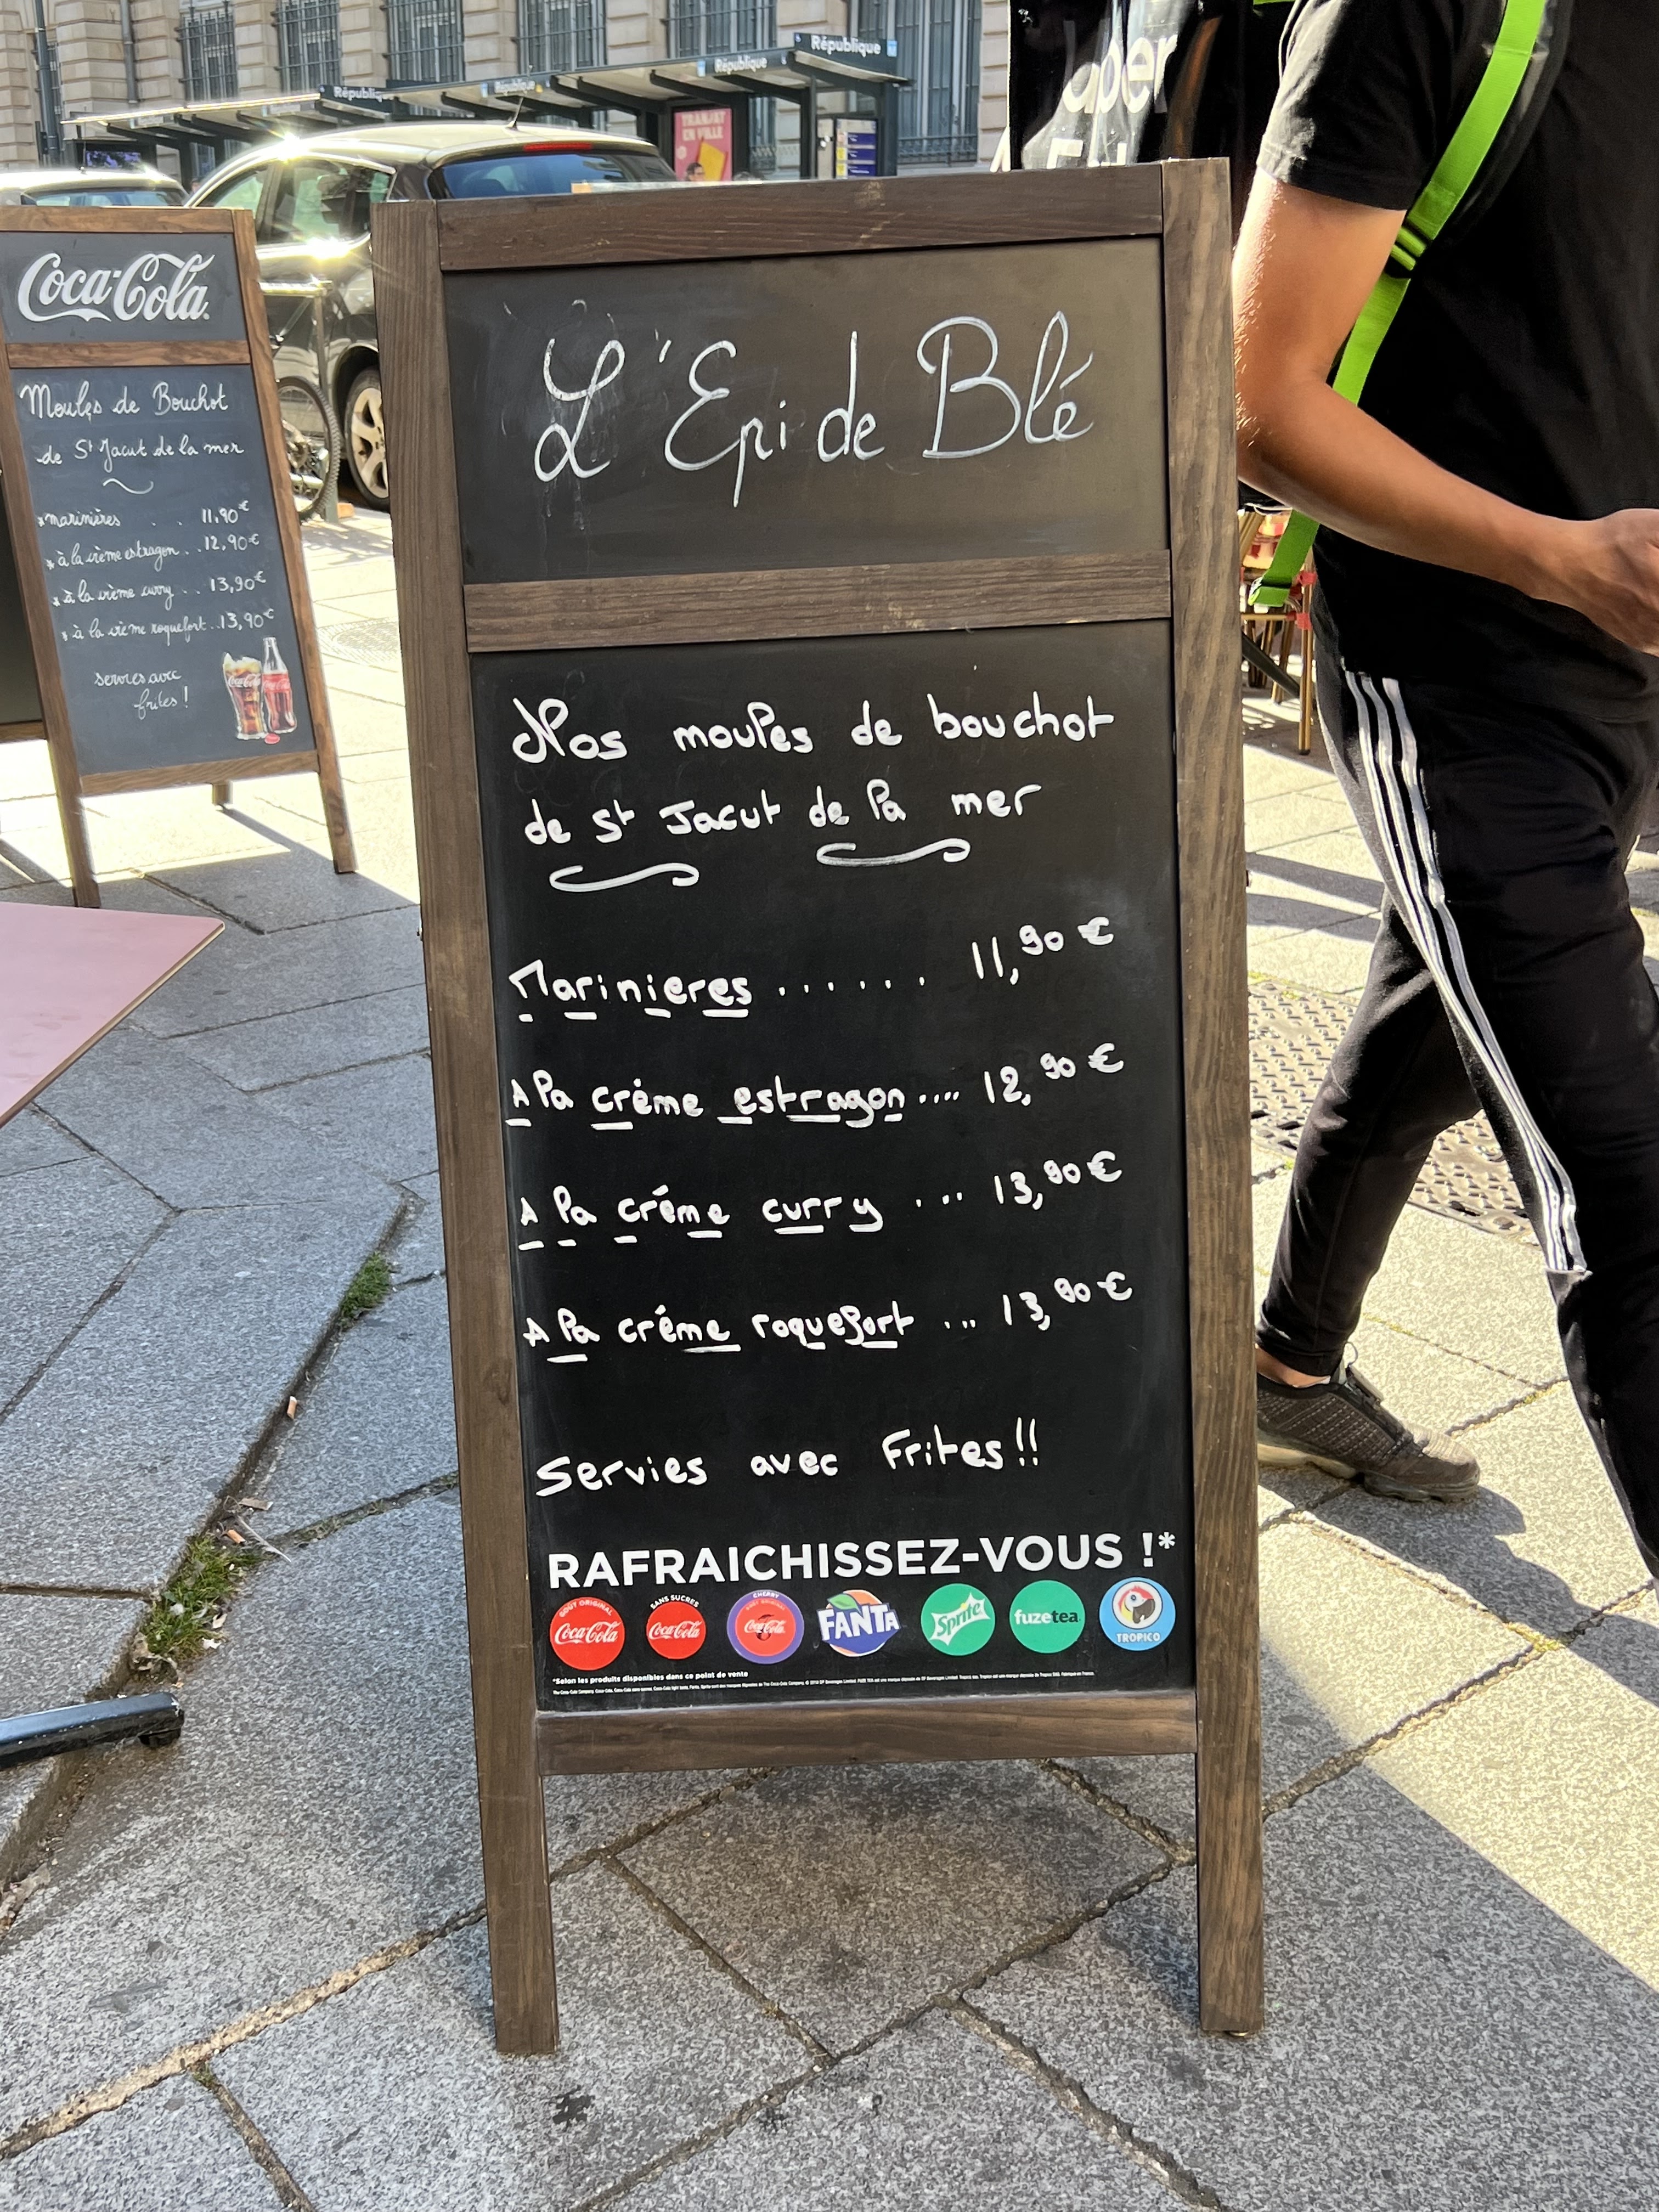 République
République
République
République
TRANSAT
EN VILLE
Uber
Coca-Cola
Moules de Bouchot
de St Jacut de la mer
*marinières . . 11,90€
*à la crème estragon . . 12,90€
*à la crème curry . . 13,90€
*à la crème roquefort . . 13,90€
servies avec
frites !
L'Epi de Blé
Nos moules de bouchot
de St Jacut de la mer
Marinieres ...... 11,90 €
A la crème estragon .... 12,90 €
A la créme curry .... 13,90 €
A la créme roquefort ... 13,90 €
Servies avec Frites!!
RAFRAICHISSEZ-VOUS !*
GOÛT ORIGINAL
Coca-Cola
SANS SUCRES
Coca-Cola
CHERRY
Coca-Cola
FANTA
Sprite
fuzetea
TROPICO
*Selon les produits disponibles dans ce point de vente